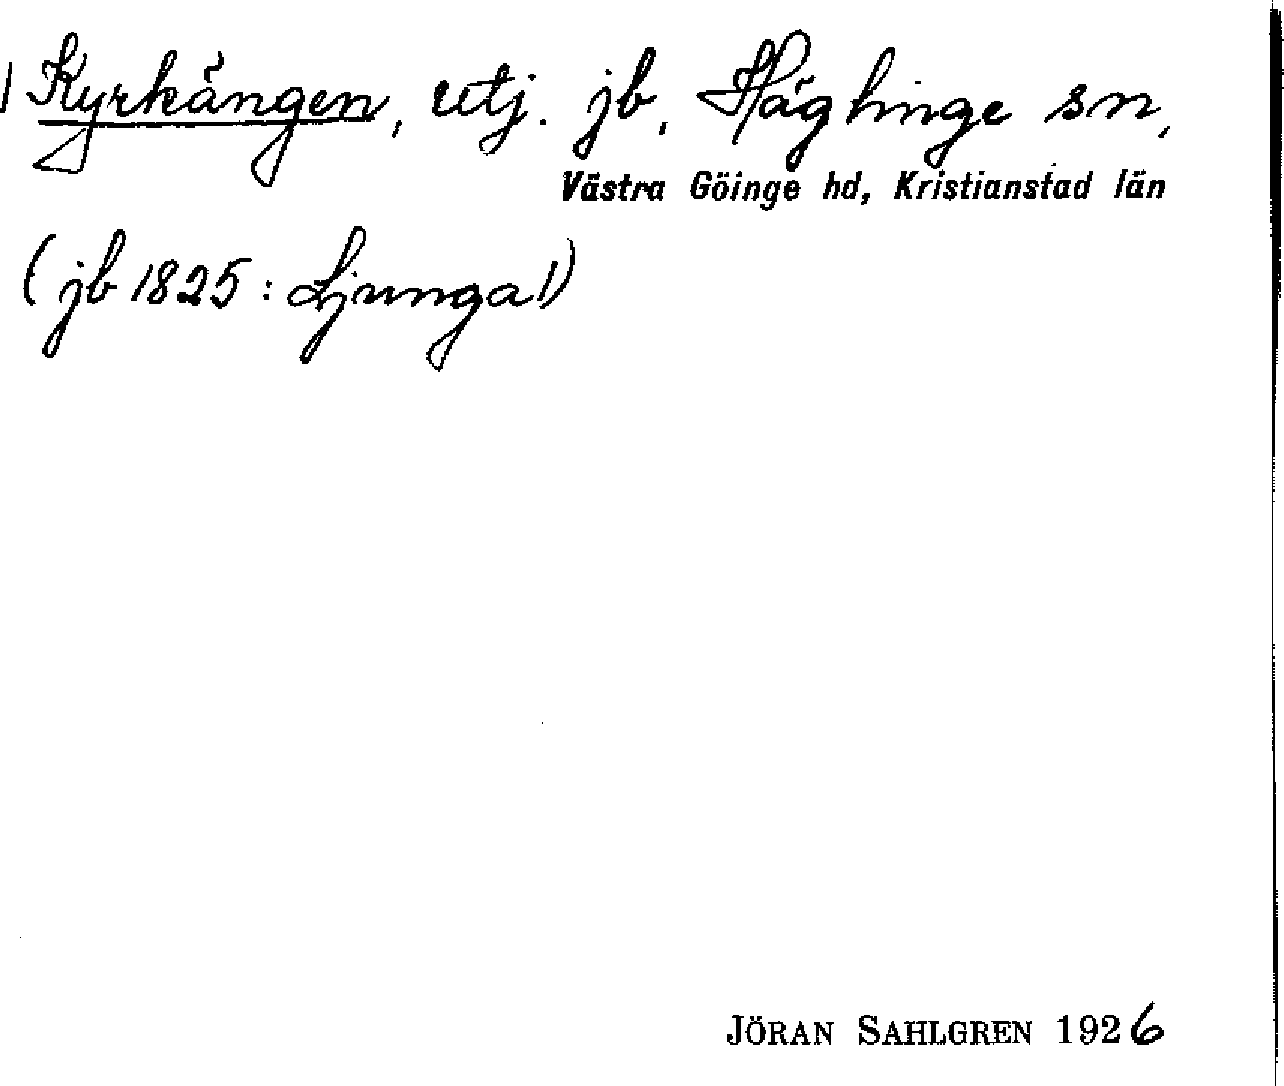 Kyrkängen, utj. jb. Häglinge sn,
Västra Göinge hd, Kristianstad län
(jb 1825: Ljunga 1)
JÖRAN SAHLGREN 1926